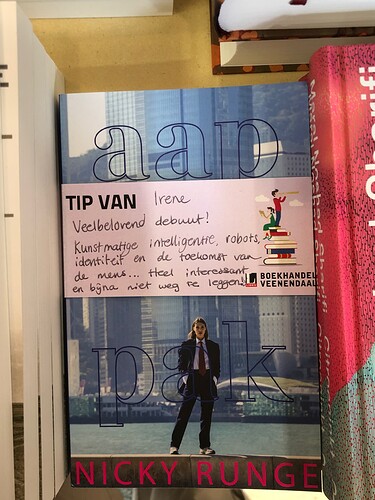 aap
TIP VAN Irene
Veelbelovend debuut!
Kunstmatige intelligentie, robots,
identiteit en de toekomst van
de mens... Heel interessant
en bijna niet weg te leggen!
BOEKHANDEL
VEENENDAAL
pak
NICKY RUNGE